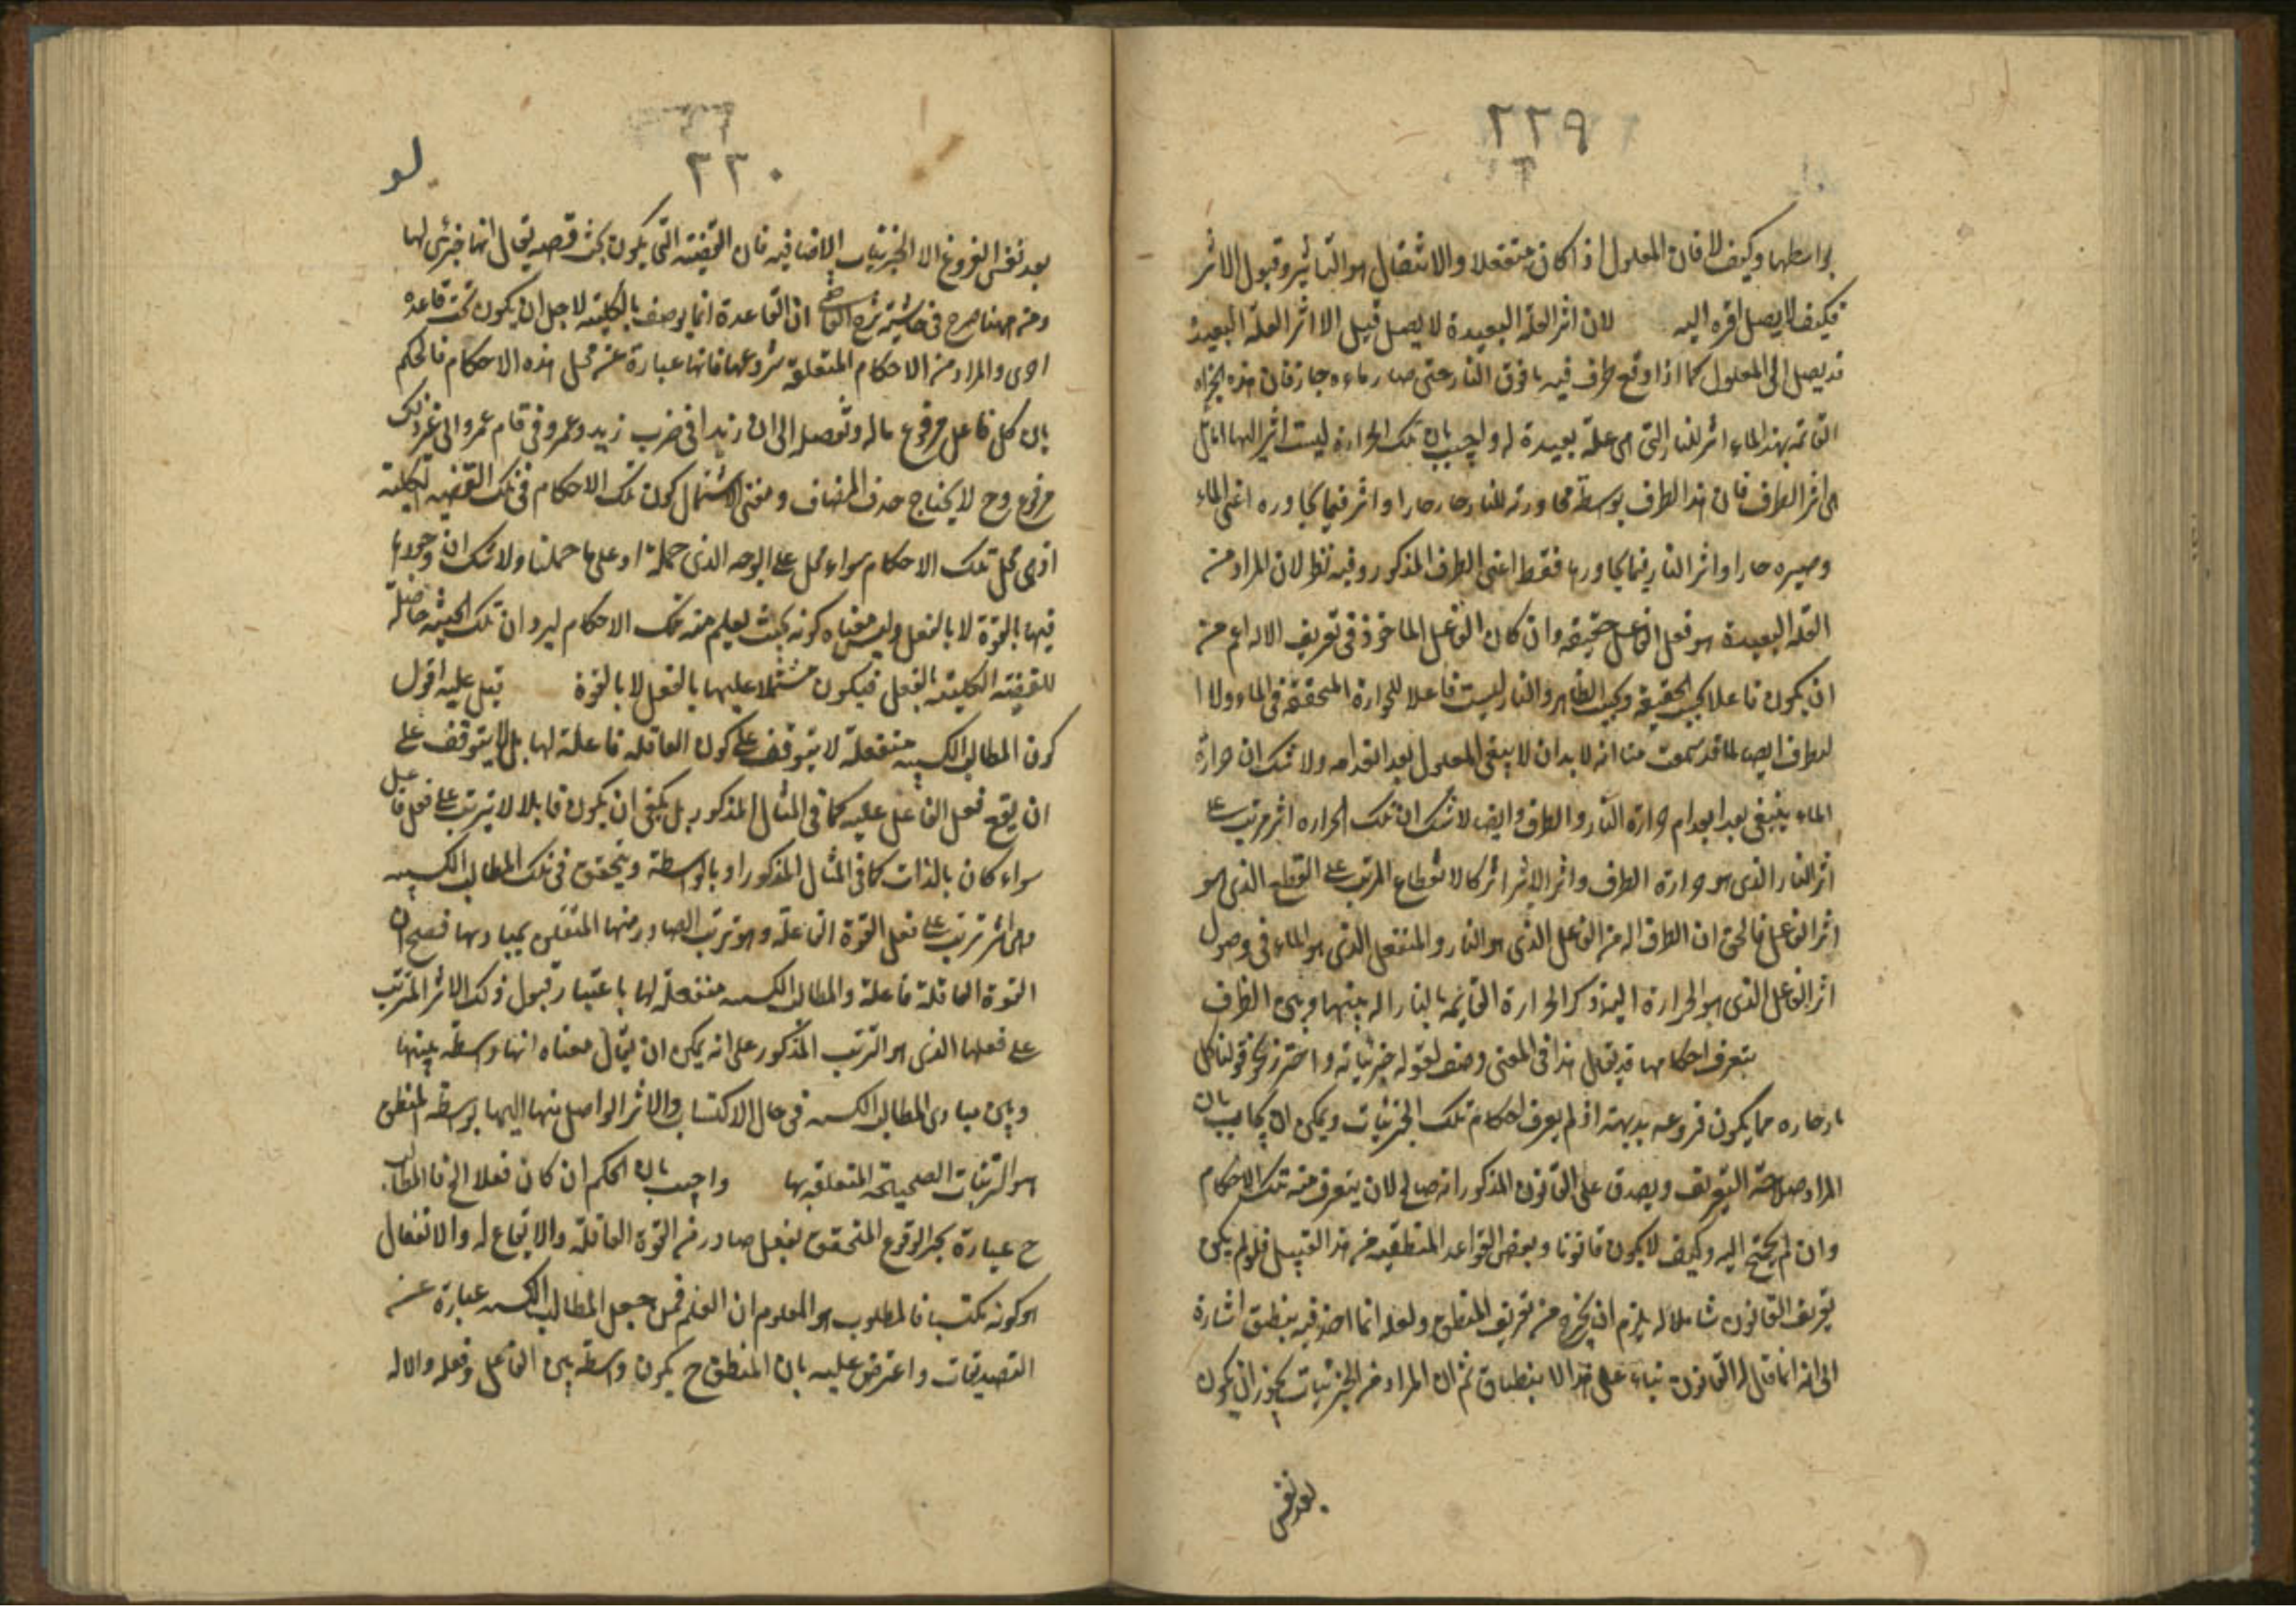 ٢٢٩
بواسطتها وكيف لا فان المعلول اذا كان منفعلا والانفعال هو التأثير وقبول الاثر
فكيف لا يصل اثره اليه لان اثر العلة البعيدة لا يصل قيل الا اثر العلة البعيدة
قد يصل الى المعلول كما اذا وقع ظرف فيه ما فوق النار حتى صار ماءه حارا فان هذه الحرارة
القائمة بهذا الماء اثر للنار التى هى علة بعيدة له واجيب بان تلك الحرارة ليست اثر النار بل
هى اثر الظرف فان هذا الظرف بوسطة مجاورته للنار صار حارا واثر فيما يجاوره اعنى الماء
وصيره حارا واثر النار فيما يجاورها فقط اعنى الظرف المذكور وفيه نظر لان المراد من
العلة البعيدة هو فعل الفاعل حقيقة وان كان الفاعل الماخوذ فى تعريف الالة اعم من
ان يكون فاعلا بحسب الحقيقة وبحسب الظاهر والنار ليست فاعلا للحرارة المتحققة فى الماء ولا
لظرف ايضا لما قد سمعت منا انه لا بد ان لا يبقى المعلول بعد انعدامه ولا شك ان حرارة
الماء يبقى بعد انعدام حرارة النار والظرف وايضا لا شك ان تلك الحرارة اثر مرتب على
اثر النار الذى هو حرارة الظرف واثر الاثر اثر كالانقطاع المرتب على القطع الذى هو
اثر الفاعل فالحق ان الظرف الة من الفاعل الذى هو النار والمنفعل الذى هو الماء فى وصول
اثر الفاعل الذى هو الحرارة اليه وكذا الحرارة القائمة بالنار الة بينها وبين الظرف
يتعرف احكامها قد يقال هذا فى المعنى وصف لقوله جزئياته واحترز نحو قولنا كل
نار حارة مما يكون فروعه بديهية اذ لم يعرف احكام تلك الجزئيات ويمكن ان يجاب بان
المراد صلاحية التعريف ويصدق على القانون المذكور انه صالح لان يتعرف منه تلك الاحكام
وان لم يحتج اليه وكيف لا يكون قانونا وبعض القواعد المنطقية من هذا القبيل فلو لم يكن
تعريف القانون شاملا له يلزم ان يخرج من تعريف المنطق ولعله انما اخذ فيه ينطبق اشارة
الى انه انما قال له القانون بناء على هذا الانطباق ثم ان المراد من الجزئيات يجوز ان يكون
بعد نفس
٢٣٠
بعد نفس الفروع الا الجزئيات الاضافية فان القضية التى يكون بحث قصد يقال انها جزئى لها
ومن ههنا صرح فى حاشية شرح ان القاعدة انما يوصف بالكلية لاجل ان يكون تحت قاعدة
اخرى والمراد من الاحكام المتعلقة بفروعها فانها عبارة عن محل هذه الاحكام فالحكم
بان كل فاعل مرفوع ماله وتوصل الى ان زيدا فى ضرب زيد وعمرو فى قام عمرو الى غير ذلك
مرفوع وح لا يحتاج حذف المضاف ومعنى الاشتمال كون تلك الاحكام فى تلك القضية الكلية
اذ هى محل تلك الاحكام سواء حمل على الوجه الذى حمله او على ما حملنا ولا شك ان وجودها
فيها بالقوة لا بالفعل وليس معناه كونه بحيث يعلم منه تلك الاحكام ليرد ان تلك الحيثية حاصلة
للقضية الكلية بالفعل فيكون مشتملا عليها بالفعل لا بالقوة قيل عليه اقول
كون المطالب الكسبية منفعلة لا يتوقف على كون العاقلة فاعلة لها بل لا يتوقف على
ان يقع فعل الفاعل عليه كما فى المثال المذكور بل يكفى ان يكون قابلا لا يترتب على فعل فاعل
سواء كان بالذات كما فى المثال المذكور او بالوسطة ويتحقق فى تلك المطالب الكسبية
وهى اثر ترتب على فعل القوة العاقلة وهو ترتب الصادر منها المتعلق بمباديها فصح ان
القوة العاقلة فاعلة والمطالب الكسبية منفعلة لها باعتبار قبول ذلك الاثر المترتب
على فعلها الذى هو الترتب المذكور على انه يمكن ان يقال معناه انها وسطة بينها
وبين مبادى المطالب الكسبية فى حال الاكتساب والاثر الواصل منها اليها بوسطة المنطق
هو الترتبات الصحيحة المتعلقة بها واجيب بان الحكم ان كان فعلا الخ فالمطالب
ح عبارة عن الوقوع المتحقق بفعل صادر من القوة العاقلة والايقاع له والانفعال
هو كونه مكتسبا فالمطلوب هو المعلوم ان العلم فمن جعل المطالب الكسبية عبارة عن
التصديقات واعترض عليه بان المنطق ح يكون وسطة بين الفاعل وفعله والاله